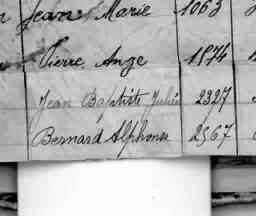 Jean Marie 1063
Pierre Ange 1874
Jean Baptiste Julien 2327
Bernard Alphonse 2567